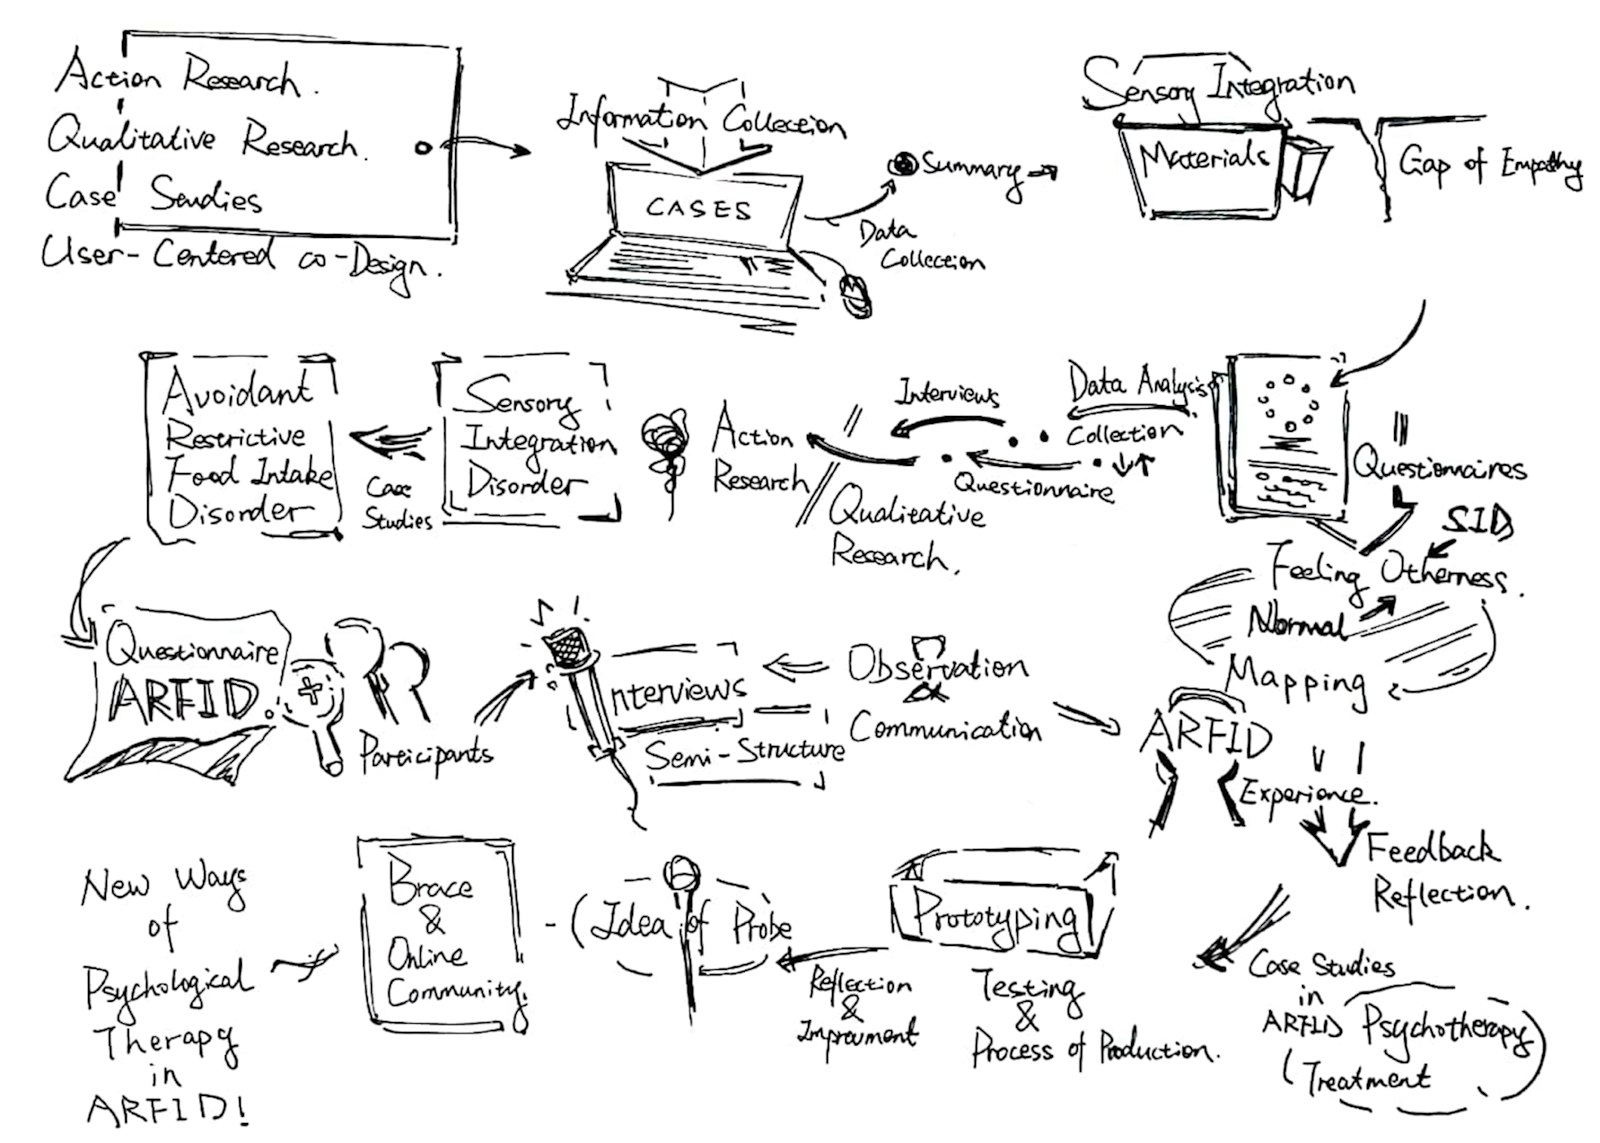 Action Research.
Qualitative Research.
Case Studies
User-Centered co-Design.
Information Collection
CASES
Summary
Data
Collection
Sensory Integration
Materials
Gap of Empathy
Questionnaires
SID
Feeling Otherness.
Normal
Mapping
Data Analysis
Collection
Interviews
Questionnaire
Qualitative
Research.
Action
Research
Sensory
Integration
Disorder
Case
Studies
Avoidant
Restrictive
Food Intake
Disorder
Questionnaire
ARFID.
Participants
Interviews
Semi-Structure
Observation
&
Communication
ARFID
Experience.
Feedback
Reflection.
Case Studies
in
ARFID Psychotherapy
Treatment
Prototyping
Testing
&
Process of Production.
Reflection
&
Improvment
(Idea of Probe
Brace
&
Online
Community.
New Ways
of
Psychological
Therapy
in
ARFID!